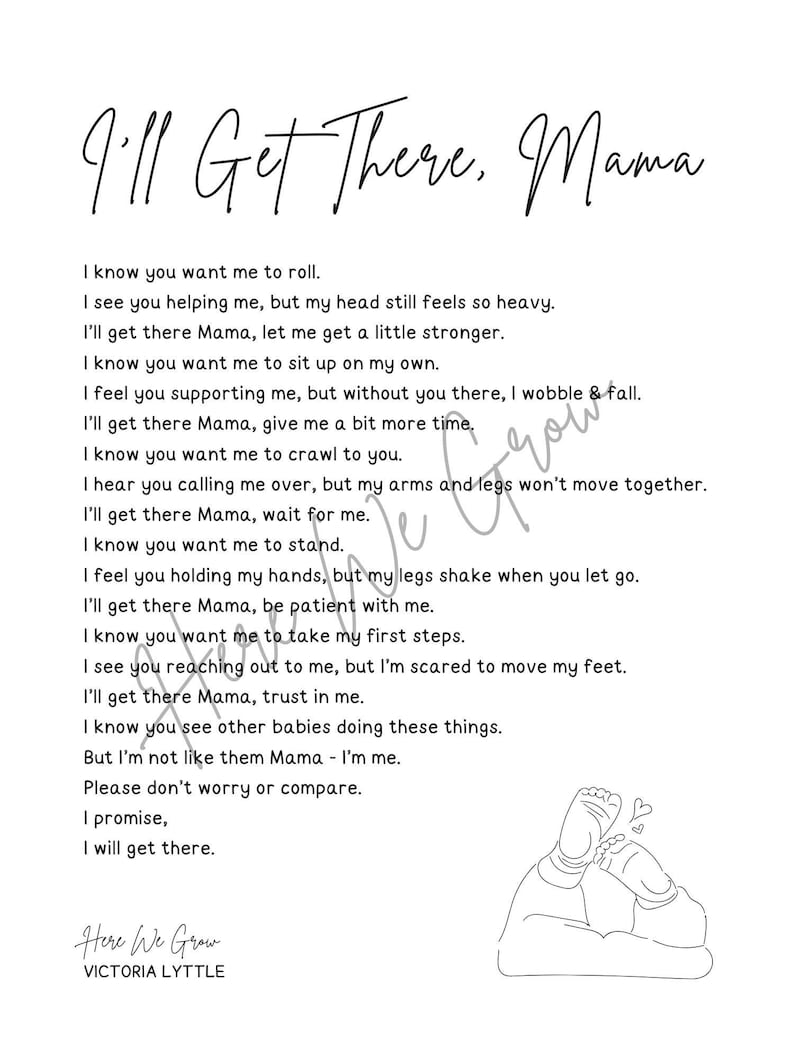 I'll Get There, Mama
I know you want me to roll.
I see you helping me, but my head still feels so heavy.
I'll get there Mama, let me get a little stronger.
I know you want me to sit up on my own.
I feel you supporting me, but without you there, I wobble & fall.
I'll get there Mama, give me a bit more time.
I know you want me to crawl to you.
I hear you calling me over, but my arms and legs won't move together.
I'll get there Mama, wait for me.
I know you want me to stand.
I feel you holding my hands, but my legs shake when you let go.
I'll get there Mama, be patient with me.
I know you want me to take my first steps.
I see you reaching out to me, but I'm scared to move my feet.
I'll get there Mama, trust in me.
I know you see other babies doing these things.
But I'm not like them Mama - I'm me.
Please don't worry or compare.
I promise,
I will get there.
Here We Grow
Here We Grow
VICTORIA LYTTLE